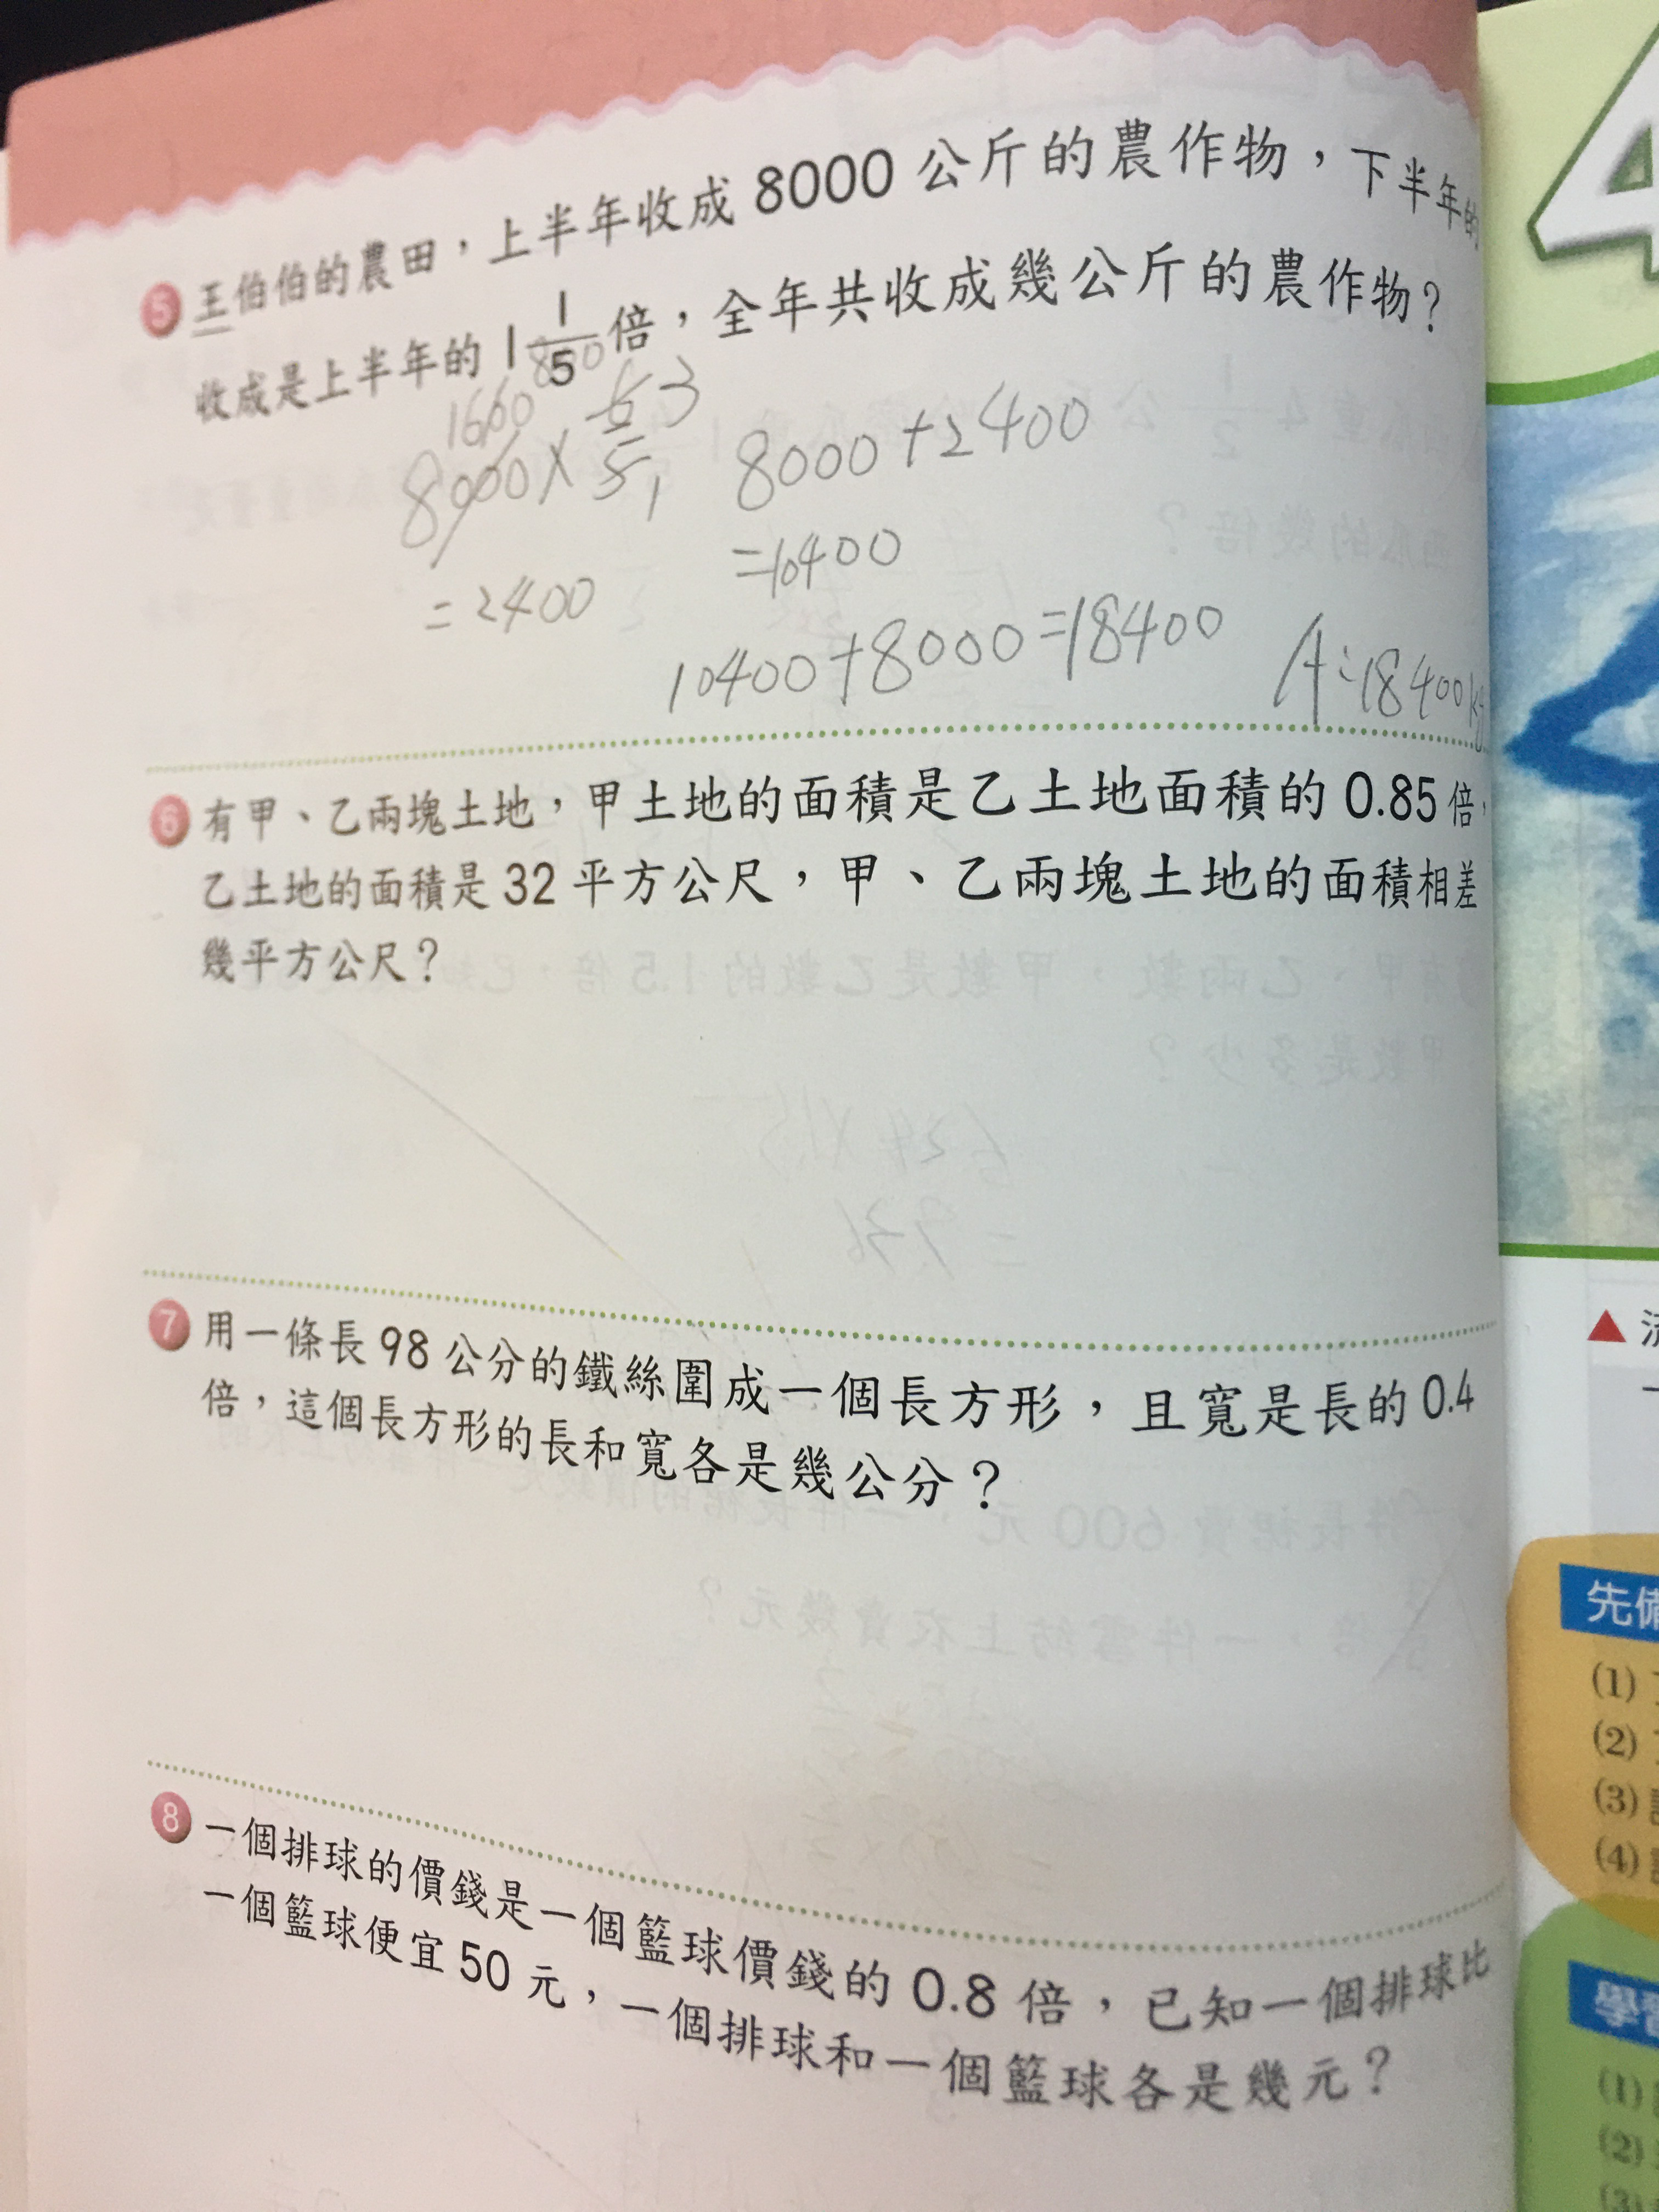 5 王伯伯的農田，上半年收成8000公斤的農作物，下半年的
收成是上半年的1 1/5倍，全年共收成幾公斤的農作物？
8000+2400
=2400
=10400
10400+8000=18400
A:18400kg
6 有甲、乙兩塊土地，甲土地的面積是乙土地面積的0.85倍，
乙土地的面積是32平方公尺，甲、乙兩塊土地的面積相差
幾平方公尺？
7 用一條長98公分的鐵絲圍成一個長方形，且寬是長的0.4
倍，這個長方形的長和寬各是幾公分？
8 一個排球的價錢是一個籃球價錢的0.8倍，已知一個排球比
一個籃球便宜50元，一個排球和一個籃球各是幾元？
4
▲
先備
(1)
(2)
(3)
(4)
學習
(1)
(2)
(3)